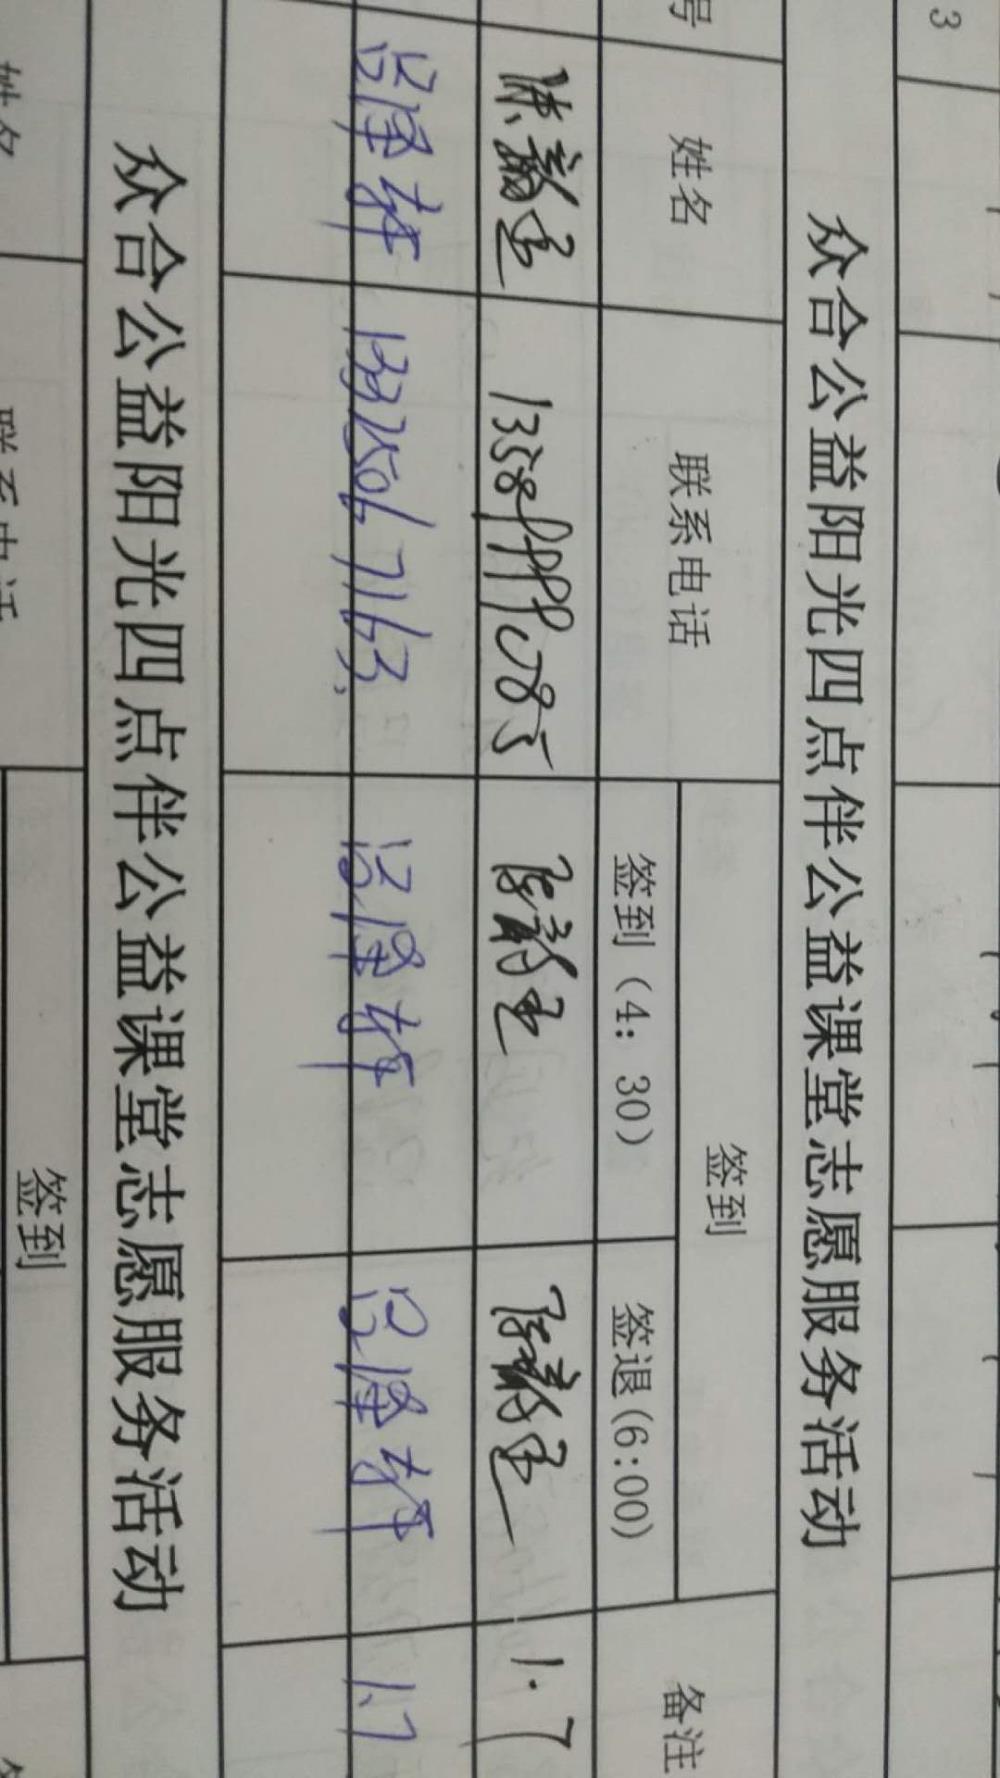 3
众合公益阳光四点伴公益课堂志愿服务活动
号 姓名 联系电话 签到 备注
签到（4：30） 签退（6:00）
1.7
吕泽梓 13375067163 吕泽梓 吕泽梓 1.7
众合公益阳光四点伴公益课堂志愿服务活动
姓名 联系电话 签到